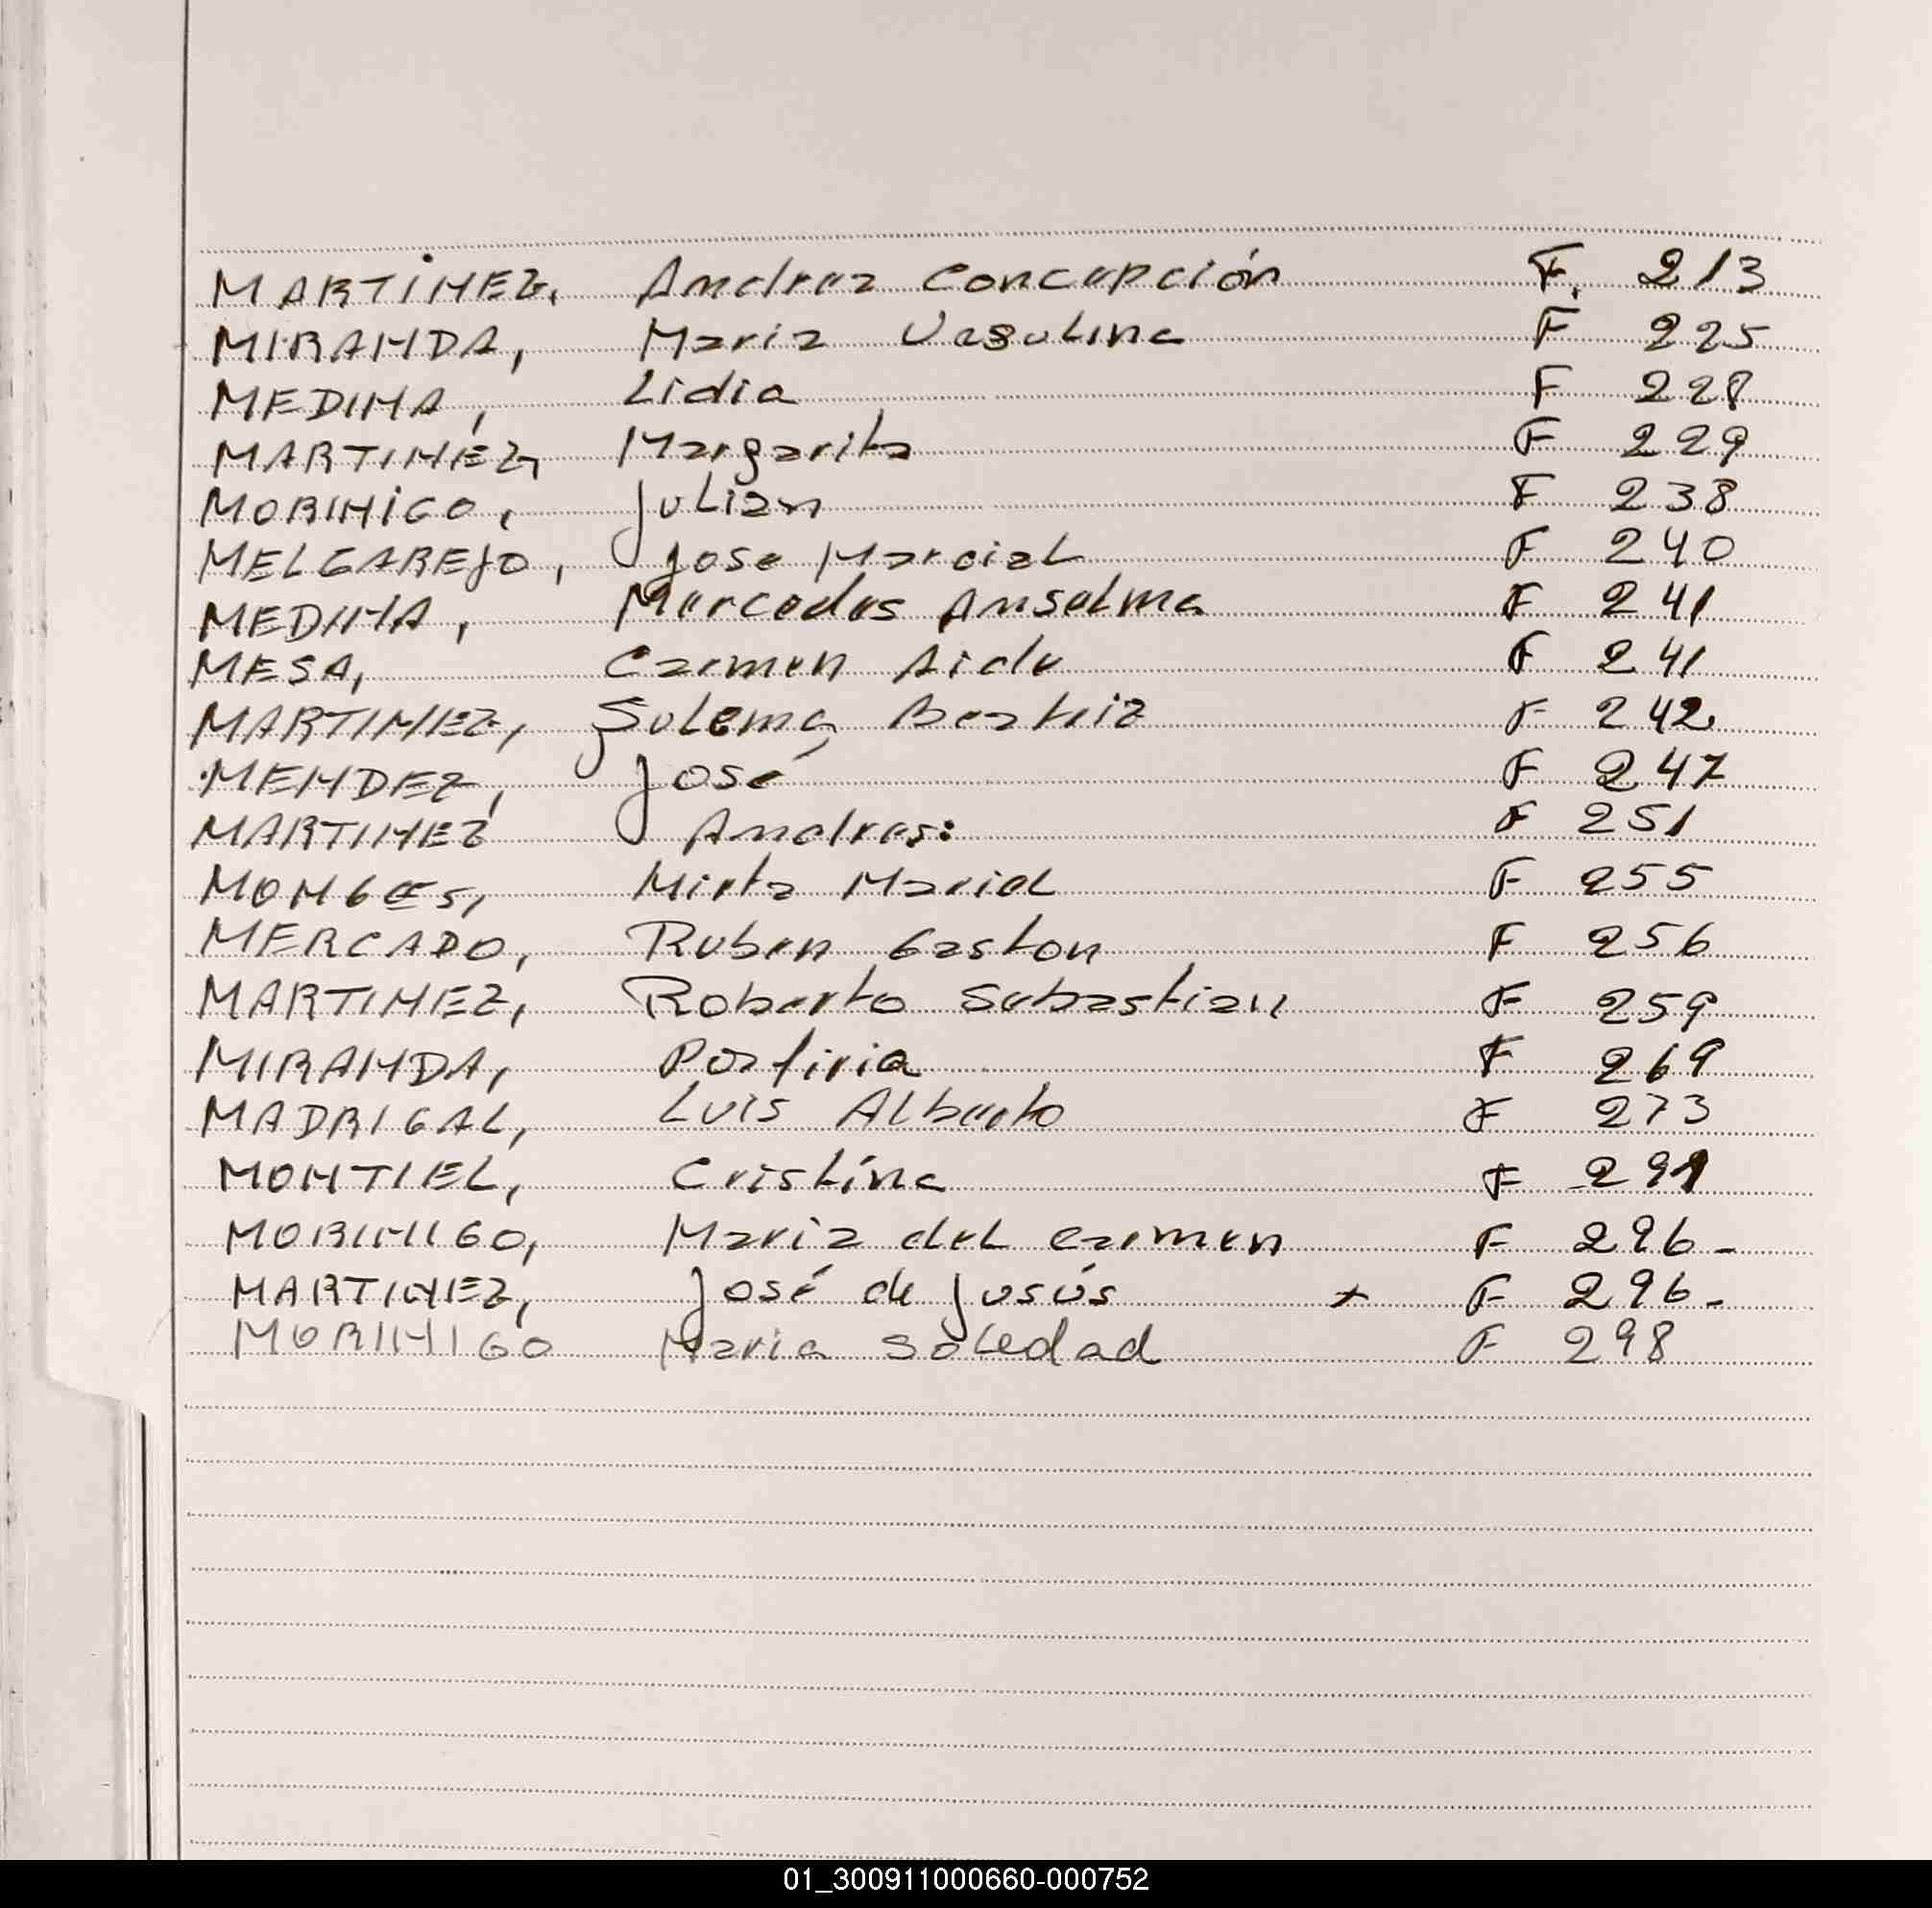 MARTÍNEZ, Andrea Concepción F. 213
MIRANDA, Maria Ursulina F 225
MEDINA, Lidia F 228
MARTINEZ, Margarita F 229
MORINIGO, Julian F 238
MELGAREJO, Jose Marcial F 240
MEDINA, Mercedes Anselma F 241
MESA, Carmen Aide F 241
MARTINEZ, Sulema Beatriz F 242
MENDEZ, José F 247
MARTINEZ Andres: F 251
MONGES, Mirta Mariel F 255
MERCADO, Ruben Gaston F 256
MARTINEZ, Roberto Sebastian F 259
MIRANDA, Porfiria F 269
MADRIGAL, Luis Alberto F 273
MONTIEL, Cristina F 291
MORINIGO, Maria del Carmen F 296-
MARTINEZ, José de Jesús + F 296-
MORINIGO Maria Soledad F 298
01_300911000660-000752